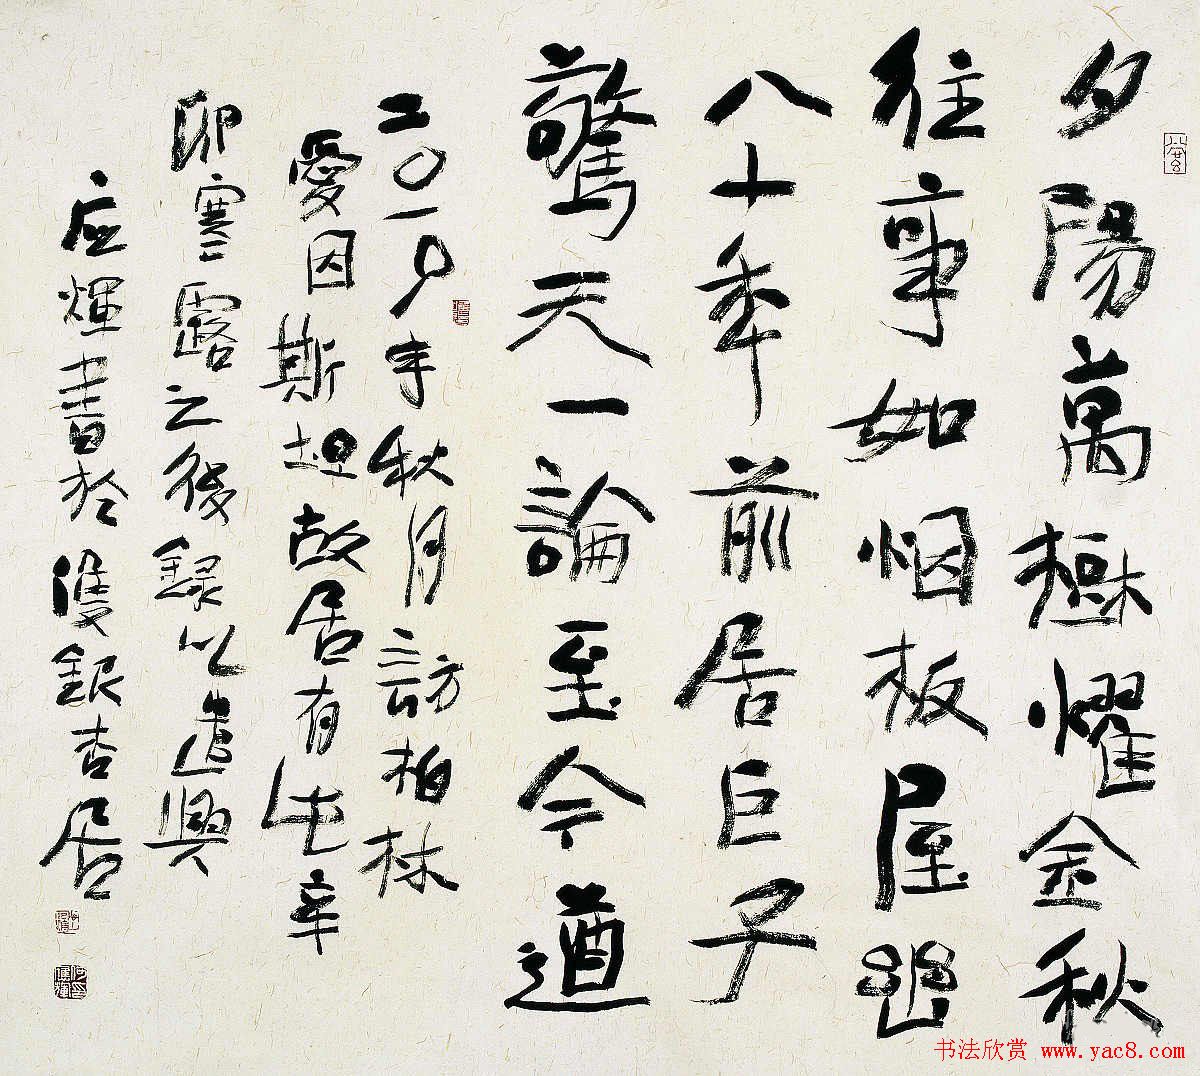 夕陽萬耀金秋
往事如烟板屋幽
八十年前居巨子
驚天一論至今遒
二〇一〇年秋月訪柏林
愛因斯坦故居有作辛
卯寒露之後録以遣興
应煇書於雙銀杏居
书法欣赏 www.yac8.com